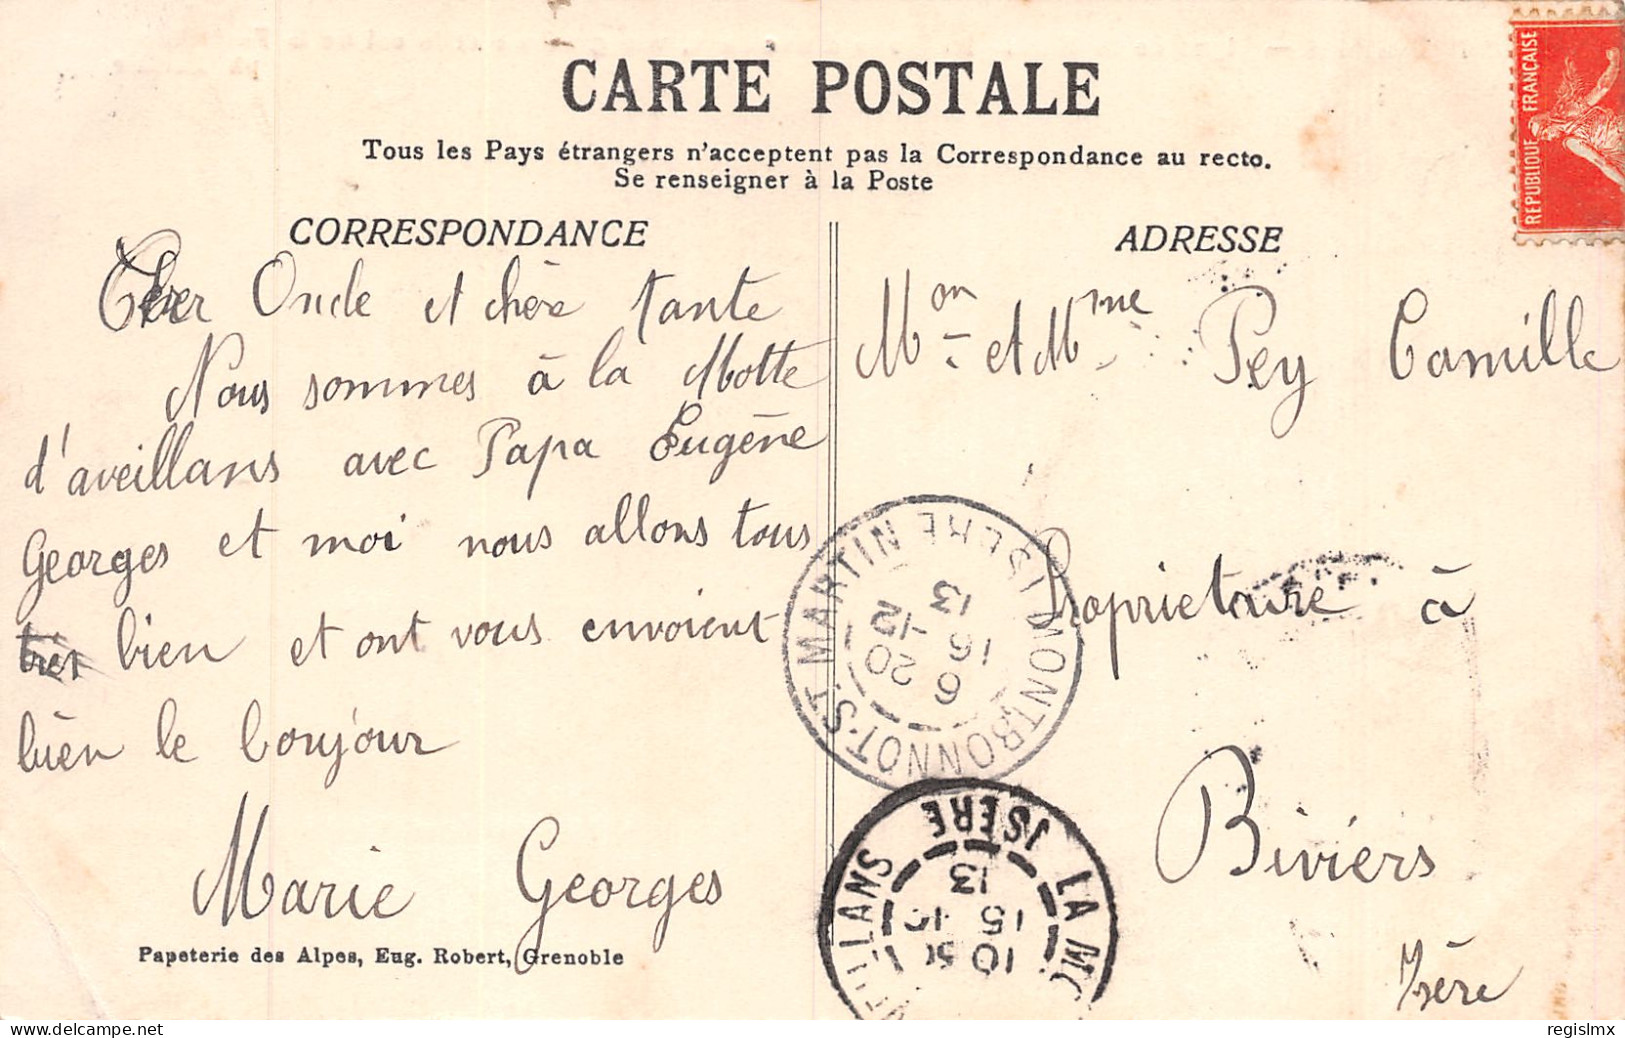 CARTE POSTALE
Tous les Pays étrangers n'acceptent pas la Correspondance au recto.
Se renseigner à la Poste
CORRESPONDANCE
Cher Oncle et chère tante
Nous sommes à la Motte
d'aveillans avec Papa Eugène
Georges et moi nous allons tous
très bien et ont vous envoient
bien le bonjour
Marie Georges
Papeterie des Alpes, Eug. Robert, Grenoble
ADRESSE
Mon et Mme Pey Camille
Propriétaire à
Biviers
Isère
REPUBLIQUE FRANÇAISE
MONTBONNOT-ST MARTIN ISERE
6
16 20
-12
13
LA M
ILLANS
ISERE
10 50
15
13
regislmx